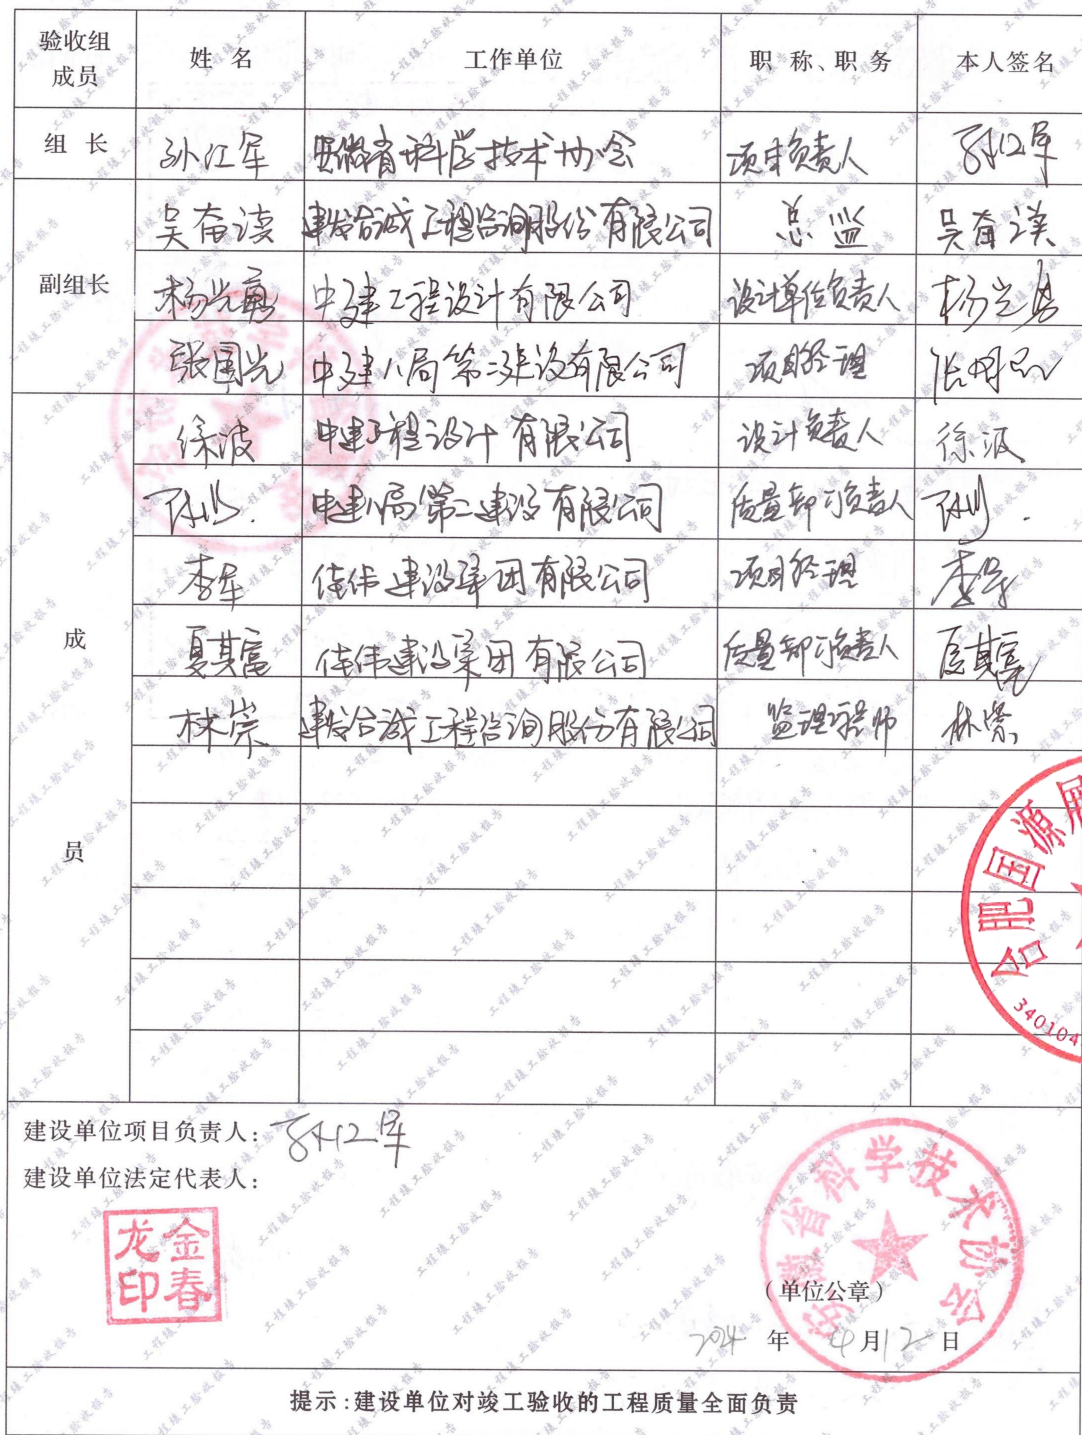 验收组成员 姓 名 工作单位 职 称、职 务 本人签名
组 长 孙江军 安徽省科学技术协会 项目负责人 孙江军
副组长
吴奋谟 建发合诚工程咨询股份有限公司 总 监 吴奋谟
杨光勇 中建工程设计有限公司 设计单位负责人 杨光勇
张国光 中建八局第二建设有限公司 项目经理
成员
徐波 中建工程设计有限公司 设计负责人 徐波
中建八局第二建设有限公司 质量部门负责人
李军 佳伟建设集团有限公司 项目经理 李军
夏其富 佳伟建设集团有限公司 质量部门负责人 夏其富
林崇 建发合诚工程咨询股份有限公司 监理工程师 林崇
合肥国源展
340104
建设单位项目负责人：孙江军
建设单位法定代表人：
龙金印春
安徽省科学技术协会
（单位公章）
2024 年 4月12日
提示:建设单位对竣工验收的工程质量全面负责
工程竣工验收报告